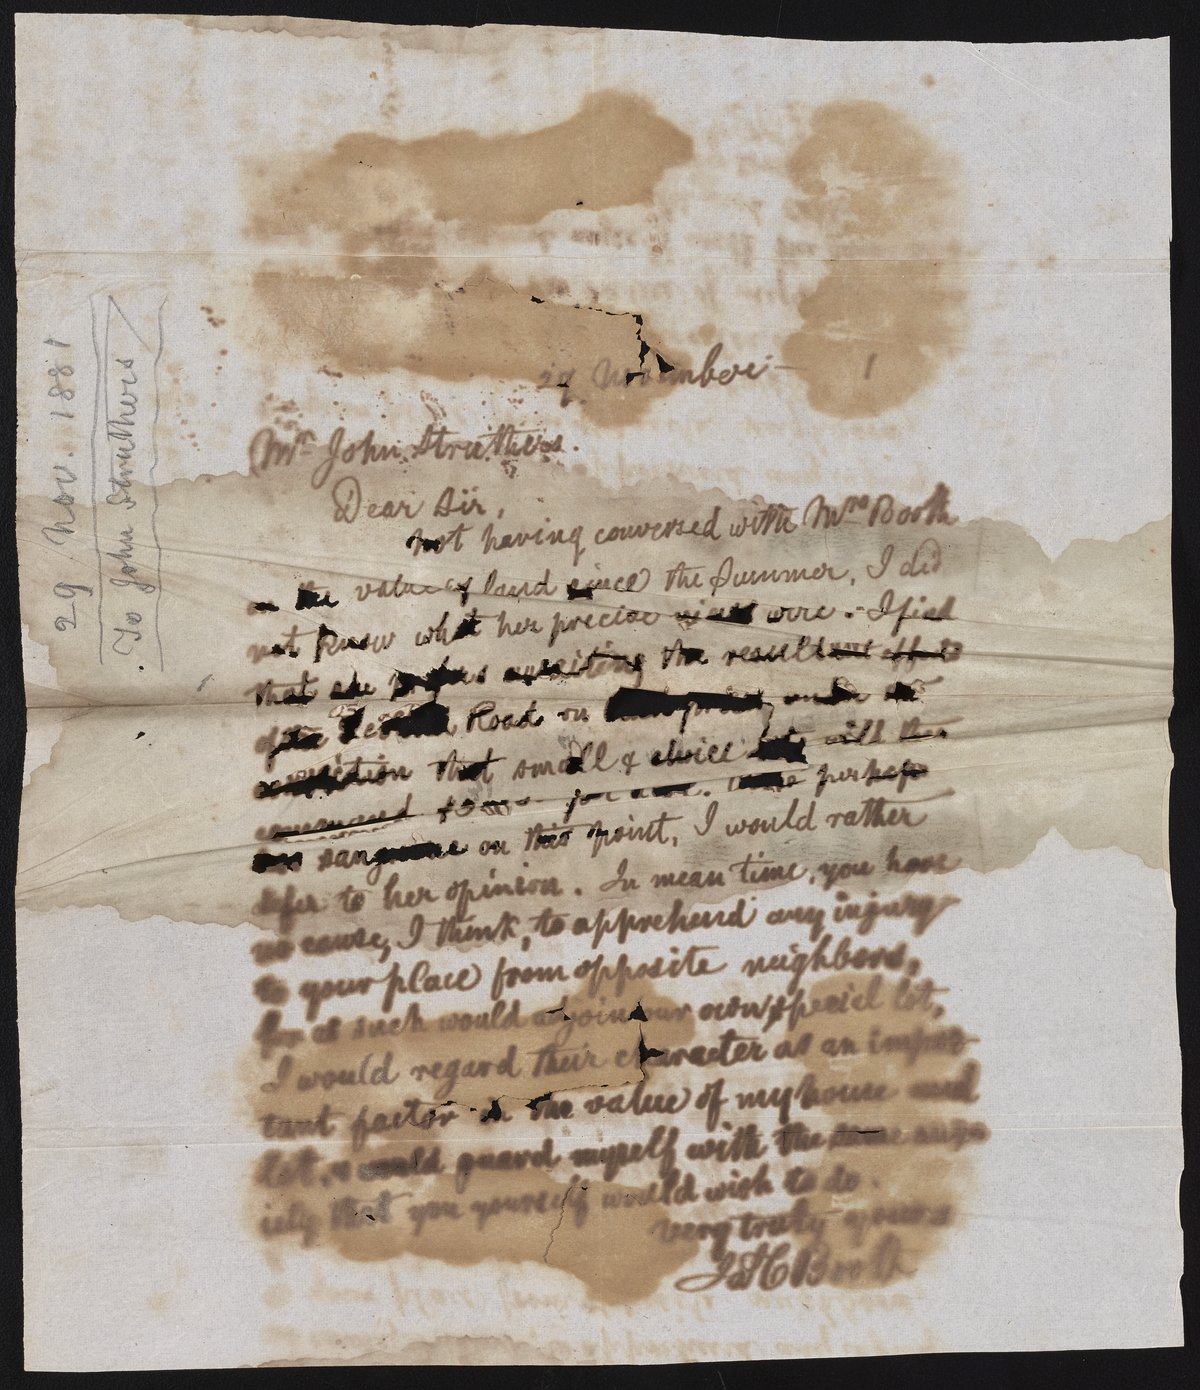 29 November 1
Mr John Struthers.
Dear Sir,
Not having conversed with Mrs Booth
on the value of land since the Summer, I did
not know what her precise views were. I find
that she prefers awaiting the resultant effects
of the Road on under the
conviction that small & choice lots will then
command for also. Less perhaps
sanguine on this point, I would rather
defer to her opinion. In mean time, you have
no cause, I think, to apprehend any injury
to your place from opposite neighbors,
for as such would adjoin our own special lot,
I would regard their character as an impor-
tant factor in the value of my house and
lot, & would guard myself with the same anx-
iety that you yourself would wish to do.
Very truly yours
J C Booth
29 Nov. 1881
To John Struthers